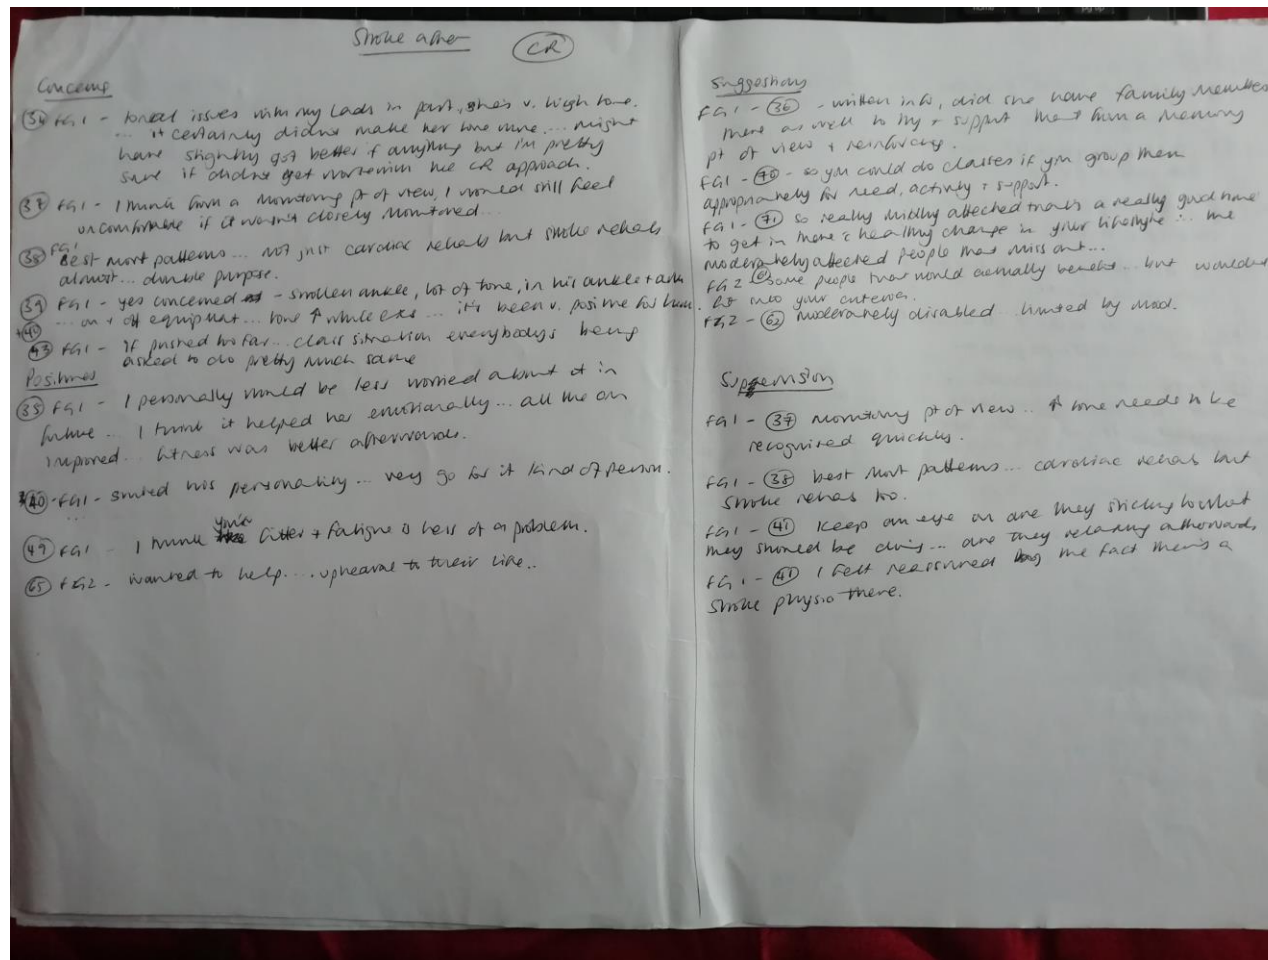 Stroke after
CR
Concerns
34 FG1 - tonal issues with my lady in past, shes v. high tone.
... it certainly didnt make her tone worse.... might
have slightly got better if anything but i'm pretty
sure it didnt get worse with the CR approach.
37 FG1 - I think from a monitoring pt of view, I would still feel
uncomfortable if it wasn't closely monitored...
38 FG1 Best mvt patterns... not just cardiac rehab but stroke rehab
almost... double purpose.
39 FG1 - yes concerned - swollen ankle, lot of tone, in his ankle + arm
+40 ... on + off equipment... tone ↑ while exs ... it's been v. positive for him.
43 FG1 - If pushed too far... class situation everybody's being
asked to do pretty much same
Positives
35 FG1 - I personally would be less worried about it in
future... I think it helped her emotionally... all the
improved... fitness was better afterwards.
40 - FG1 - suited his personality... very go for it kind of person.
...
49 FG1 - I think you're fitter + fatigue is less of a problem.
65 FG2 - wanted to help.... upheaval to their life..
Suggestions
FG1 - 36 - written info, did she have family members
there as well to try + support that from a memory
pt of view + reinforcing.
FG1 - 70 - so you could do classes if you group them
appropriately for need, activity + support.
FG1 - 71 so really mildly affected that's a really good time
to get in there c healthy change in your lifestyle... the
moderately affected people that miss out...
FG2 - 61 some people that would actually benefit... but wouldn't
fit into your criteria.
FG2 - 62 moderately disabled... limited by mod.
Supervision
FG1 - 37 monitoring pt of view... ↑ tone needs to be
recognised quickly.
FG1 - 38 best mvt patterns... cardiac rehab but
stroke rehab too.
FG1 - 41 Keep an eye on are they sticking to what
they should be doing... are they relaxing afterwards
FG1 - 41 I felt reassured by the fact there's a
stroke physio there.